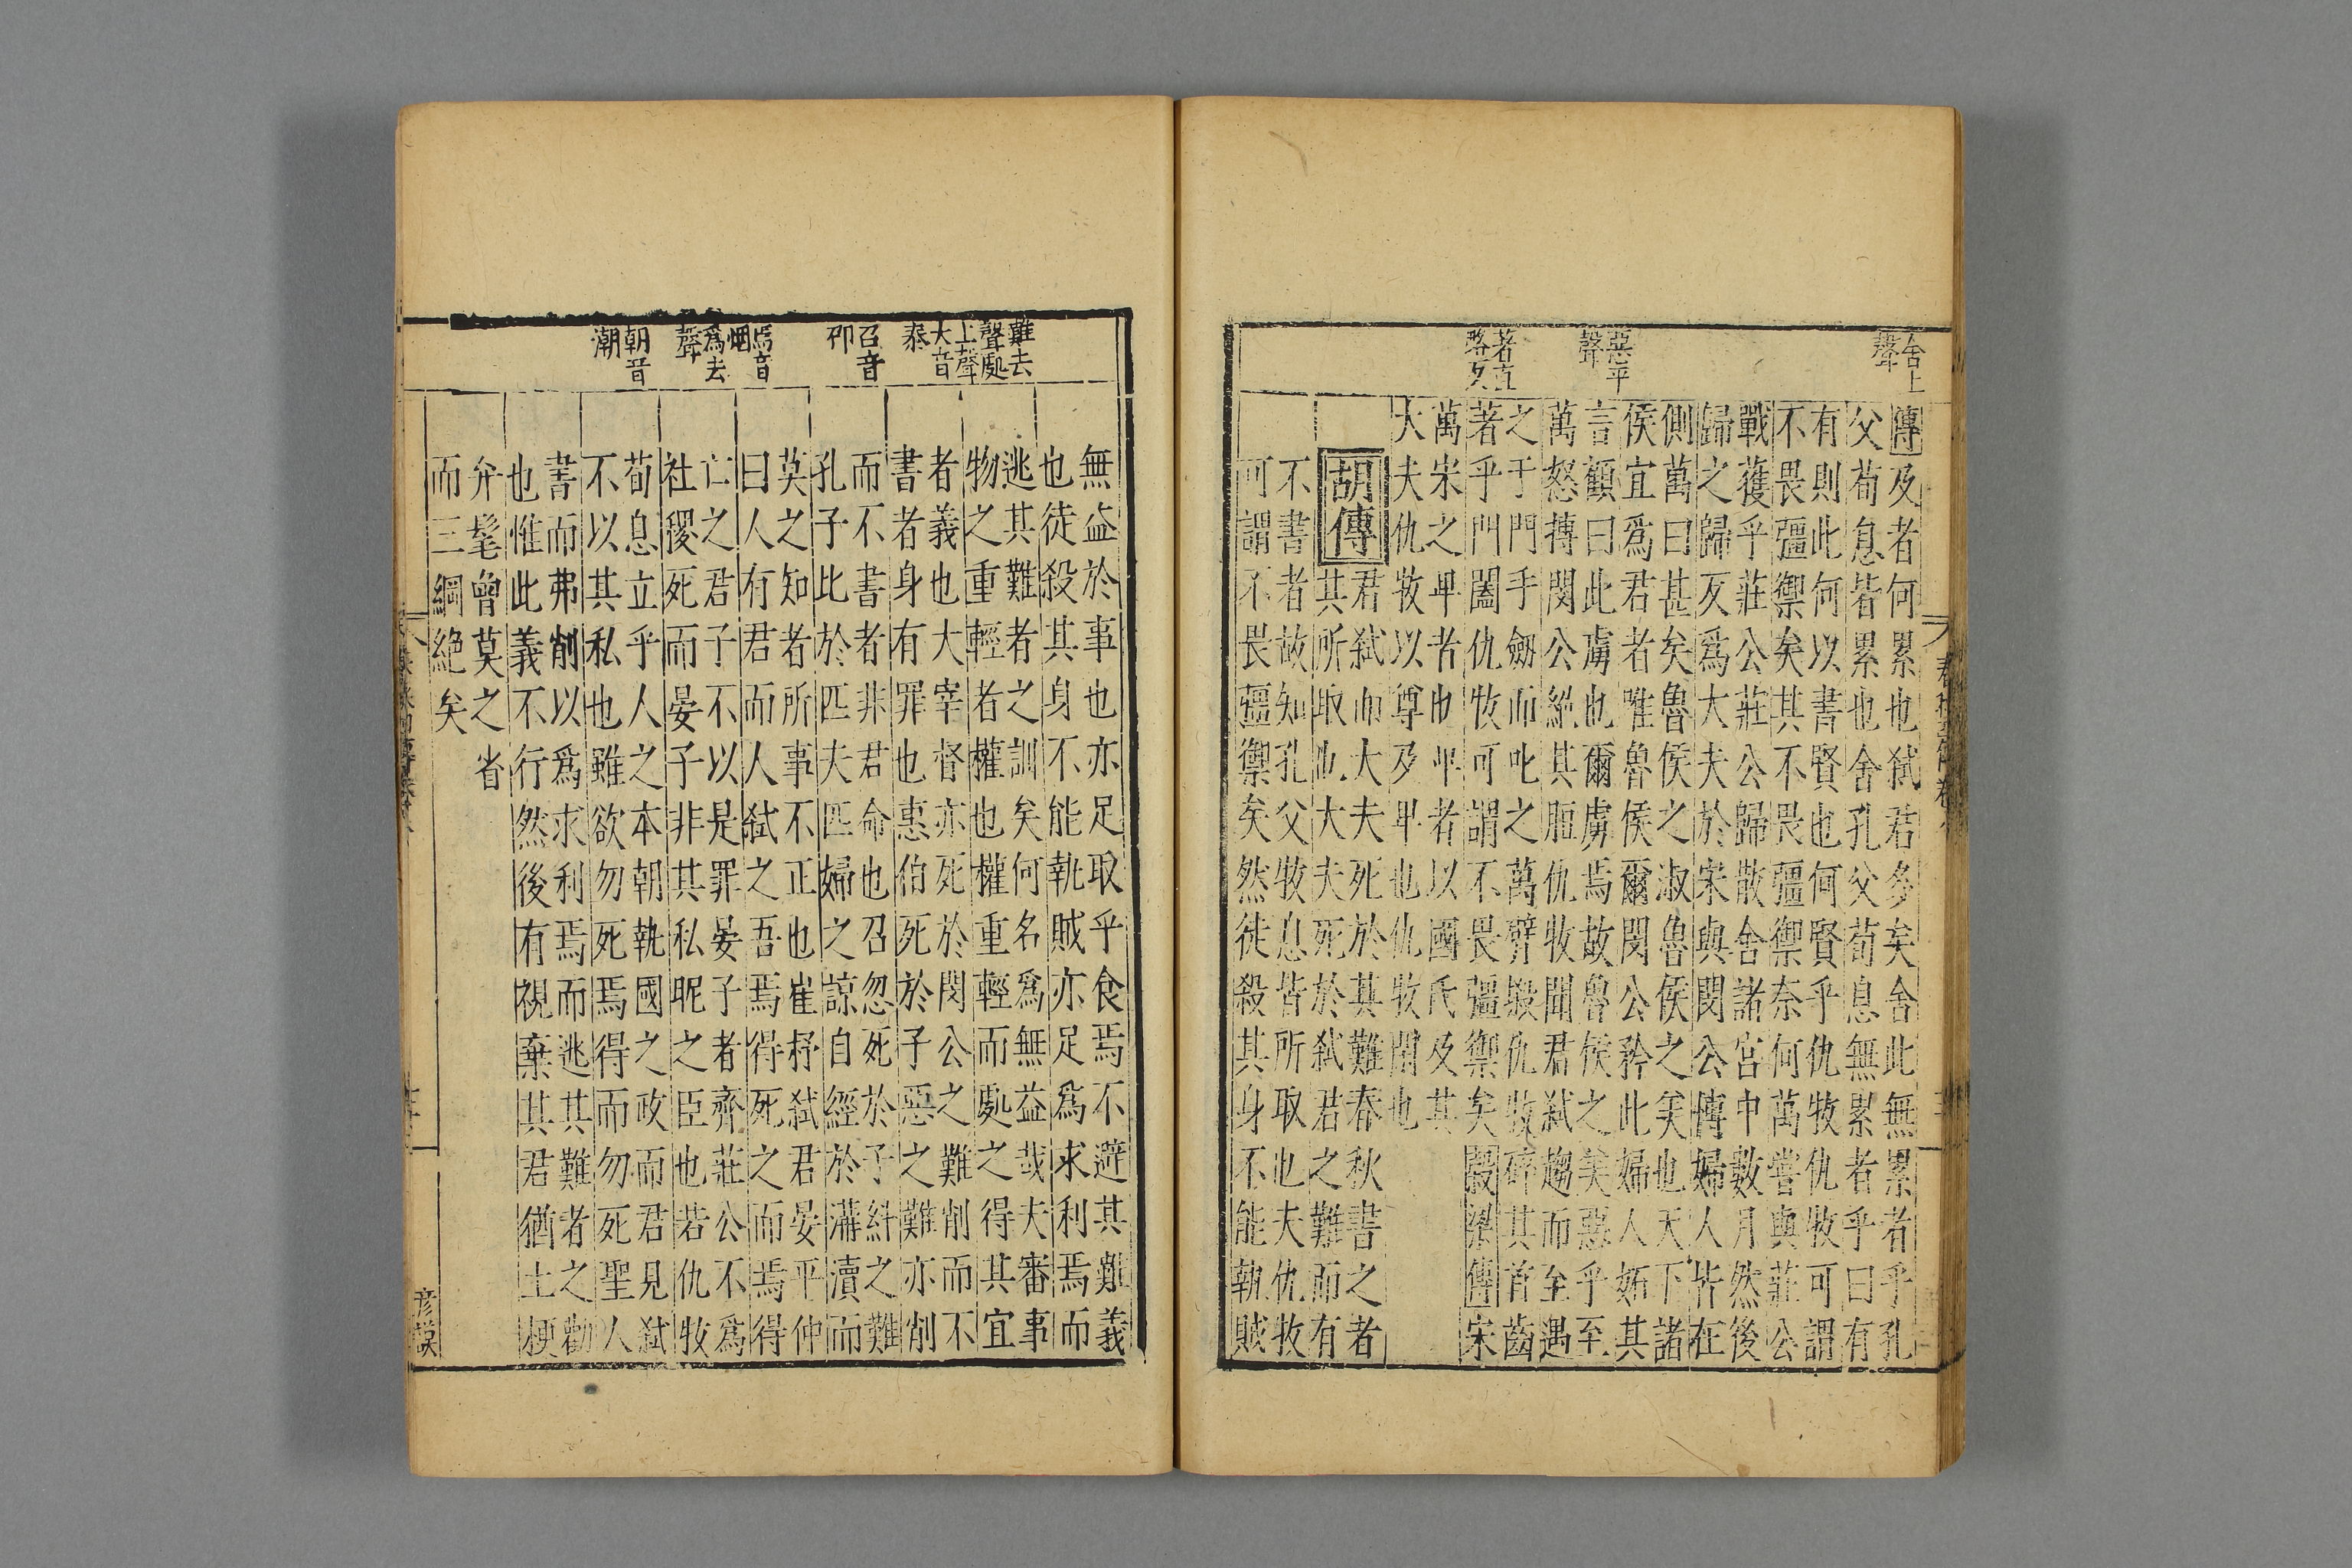 舍上
聲
惡平
聲
著直
略反
傳及者何累也弑君多矣舍此無累者乎孔
父荀息皆累也舍孔父荀息無累者乎曰有
有則此何以書賢也何賢乎仇牧仇牧可謂
不畏彊禦矣其不畏彊禦奈何萬嘗與莊公
戰獲乎莊公莊公歸散舍諸宮中數月然後
歸之歸反爲大夫於宋與閔公傳婦人皆在
側萬曰甚矣魯侯之淑魯侯之美也天下諸
侯宜爲君者唯魯侯爾閔公矜此婦人妬其
言顧曰此虜也爾虜焉故魯侯之美惡乎至
萬怒搏閔公絕其脰仇牧聞君弑趨而至遇
之于門手劒而叱之萬臂摋仇牧碎其首齒
著乎門闔仇牧可謂不畏彊禦矣穀梁傳宋
萬宋之卑者也卑者以國氏及其
大夫仇牧以尊及卑也仇牧閑也
胡傳
君弑而大夫死於其難春秋書之者
其所取也大夫死於弑君之難而有
不書者故知孔父牧息皆所取也夫仇牧
可謂不畏彊禦矣然徒殺其身不能執賊
難去
聲處
上聲
大音
泰
召音
邵
焉音
烟
爲去
聲
朝音
潮
無益於事也亦足取乎食焉不避其難義
也徒殺其身不能執賊亦足爲求利焉而
逃其難者之訓矣何名爲無益哉夫審事
物之重輕者權也權重輕而處之得其宜
者義也大宰督亦死於閔公之難削而不
書者身有罪也惠伯死於子惡之難亦削
而不書者非君命也召忽死於子糾之難
孔子比於匹夫匹婦之諒自經於溝瀆而
莫之知者所事不正也崔杼弑君晏平仲
曰人有君而人弑之吾焉得死之而焉得
亡之君子不以是罪晏子者齊莊公不爲
社稷死而晏子非其私昵之臣也若仇牧
荀息立乎人之本朝執國之政而君見弑
不以其私也雖欲勿死焉得而勿死聖人
書而弗削以爲求利焉而逃其難者之勸
也惟此義不行然後有視棄其君猶土梗
弁髦曾莫之省
而三綱絕矣
彦謨